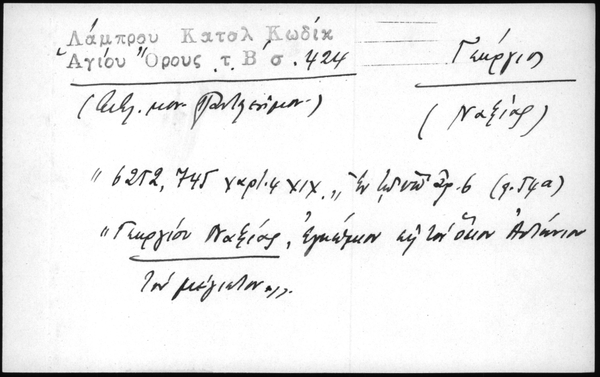 Λάμπρου Κατσλ Κωδίκ
Ἁγίου Ὄρους τ. Β΄ σ. 424
Γεώργιος
(Βιβλ. μον. Παντελεήμον.)
(Ναξίας)
"6252, 745 χαρτ. 4 XIX. " Ἐν αρ. 6 (φ. 54α)
"Γεωργίου Ναξίας, Ἐγκώμιον εἰς τὸν ὅσιον Ἀντώνιον
τὸν μέγιστον".